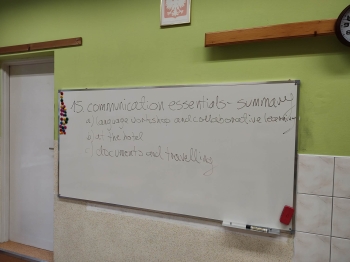 15. communication essentials - summary
a) language workshops and collaborative learning
b) at the hotel
c) documents and travelling